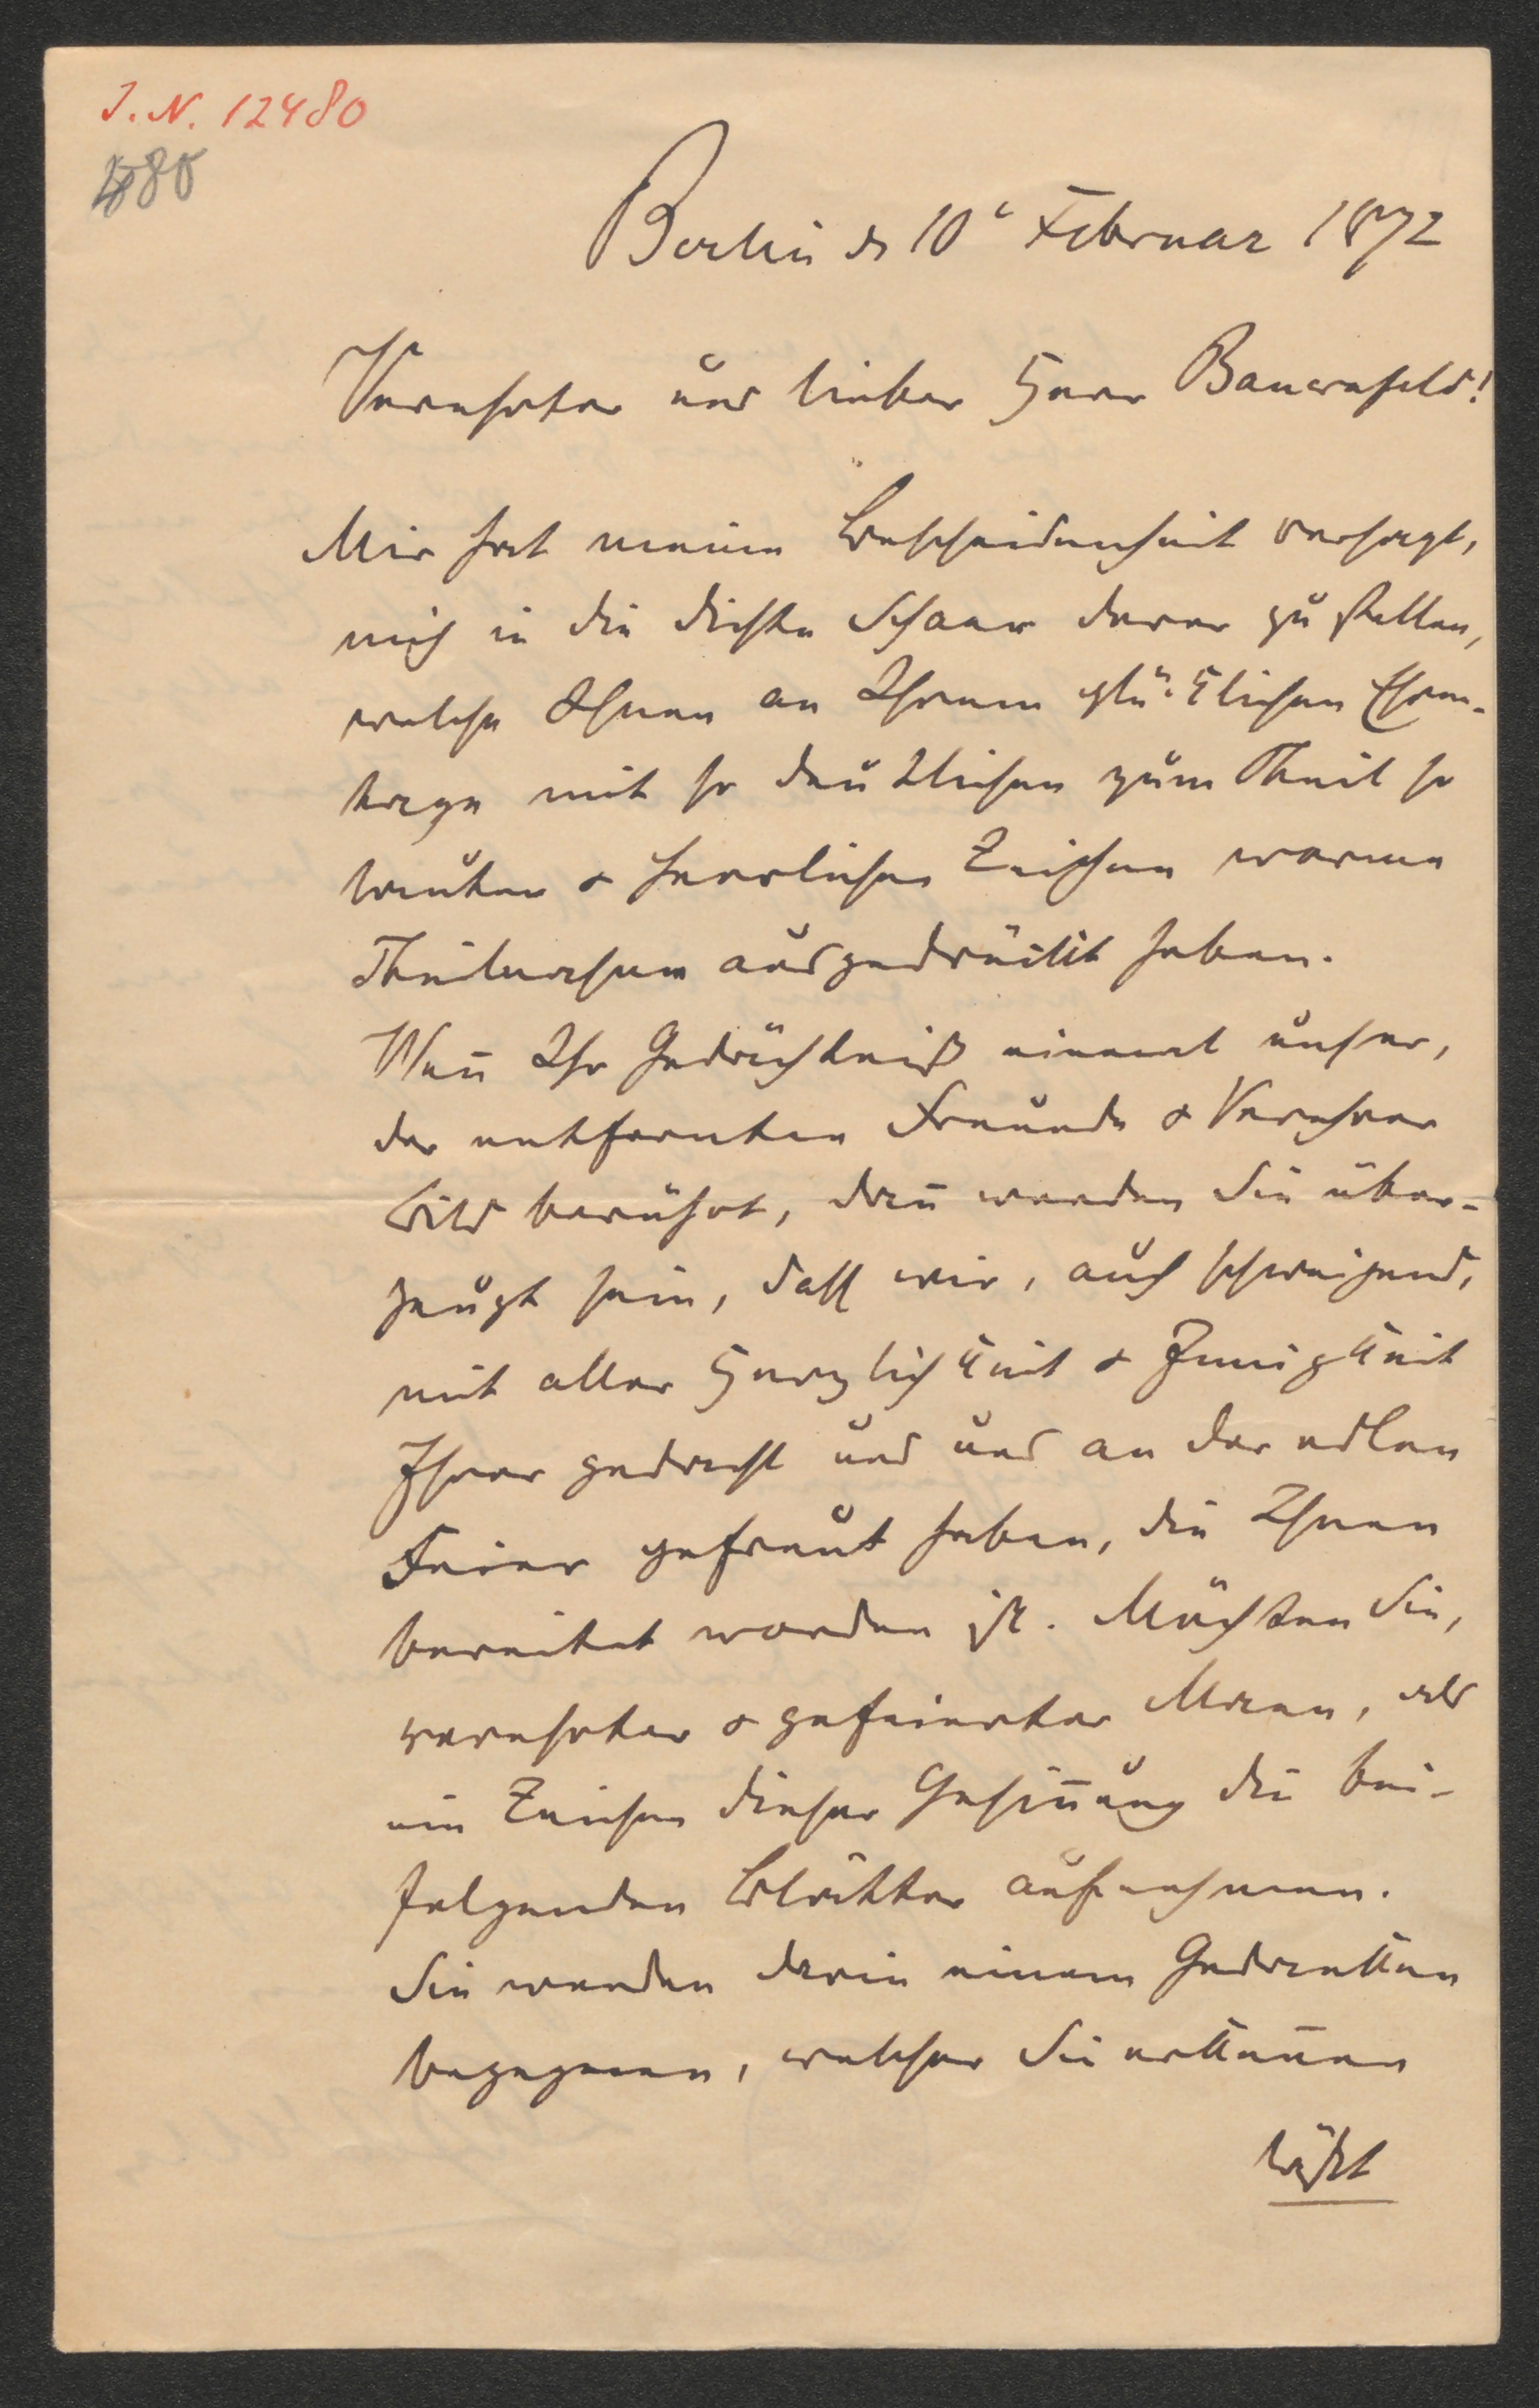 J. N. 12480
Berlin d 10t Februar 1872
Verehrter und lieber Herr Bauernfeld!
Mir hat meine Bescheidenheit versagt,
mich in die dichte Schaar derer zu stellen,
welche Ihnen an Ihrem glücklichen Ehren-
tage mit so deutlichen zum Theil so
lauten & herrlichen Zeichen warme
Theilnahme ausgedrückt haben.
Wen̄ Ihr Gedächtniß einmal unser,
der entfernten Freunde & Verehrer
Bild berührt, dan̄ werden Sie über-
zeugt sein, daß wir, auch schweigend,
mit aller Herzlichkeit & Innigkeit
Ihrer gedacht und uns an der edlen
Feier gefreut haben, die Ihnen
bereitet worden ist. Möchten Sie,
verehrter & gefeierter Mann, als
ein Zeichen dieser Gesin̄ung die bei-
folgenden Blätter aufnehmen.
Sie werden darin einem Gedanken
begegnen, welcher Sie erken̄en
läßt